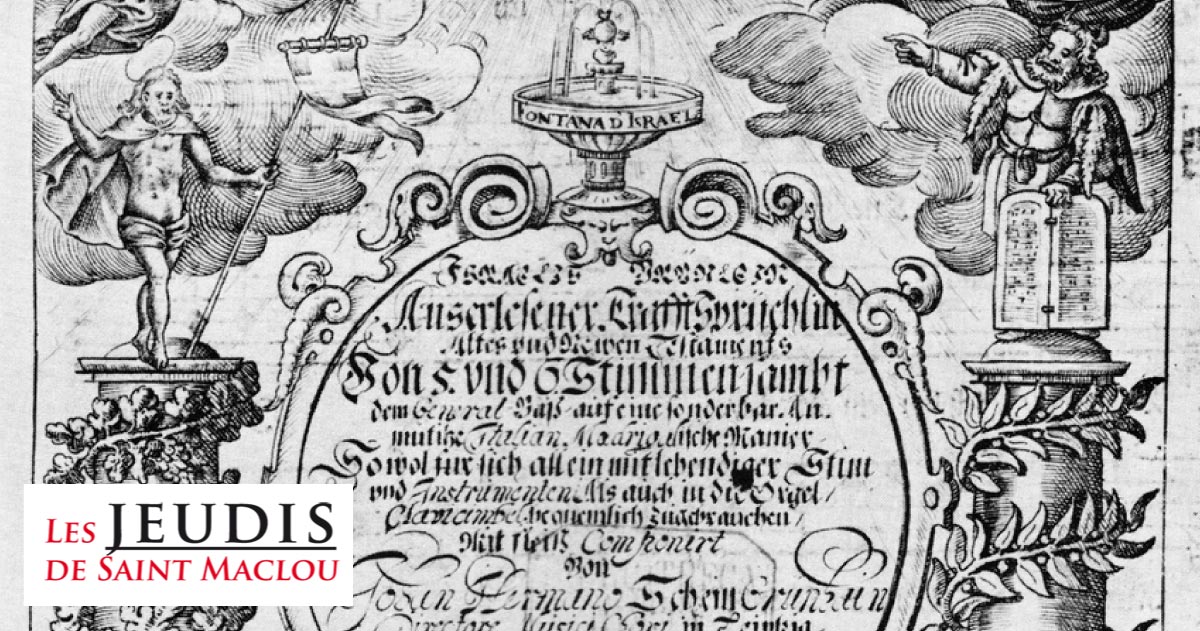 FONTANA D ISRAEL
ISRAELIS BRÜNLEIN
Auserlesener Krafft Sprüchlin
Altes vnd Newen Testaments
Von 5. vnd 6 Stimmen sambt
dem General Baß auf eine sonderbar An-
mutige Italian Madrigalische Manier
So wol für sich allein mit lebendiger Stim
vnd Instrumenten Als auch in die Orgel/
Clavicimbel bequemlich zugebrauchen/
Mit fleiß Componirt
Von
Johan Hermano Schein
Directore Musici Chori in Leipzig
LES JEUDIS
DE SAINT MACLOU